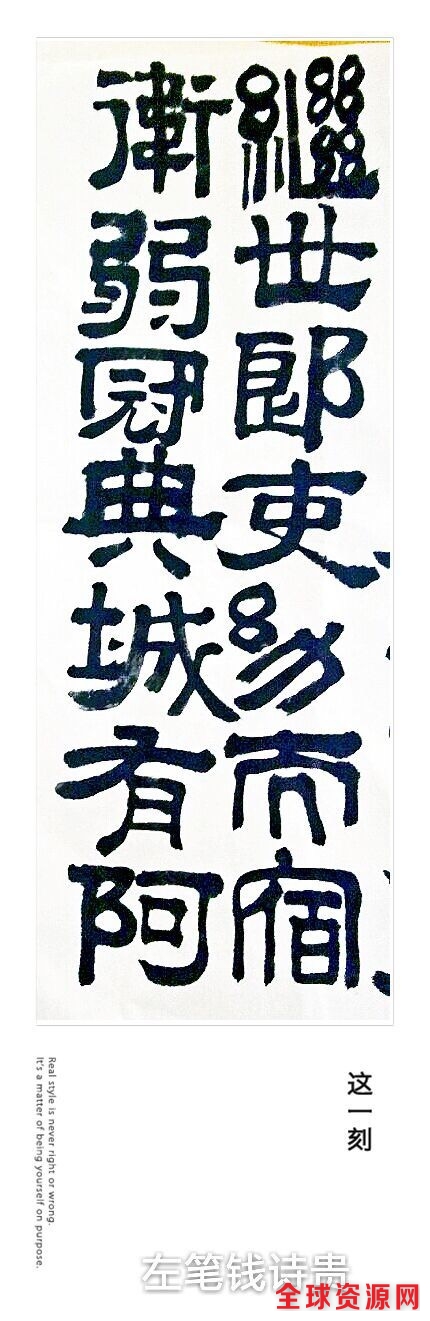 繼世郎吏幼而宿
衛弱冠典城有阿
这一刻
Real style is never right or wrong.
It's a matter of being yourself on purpose.
左笔钱诗贵
全球资源网